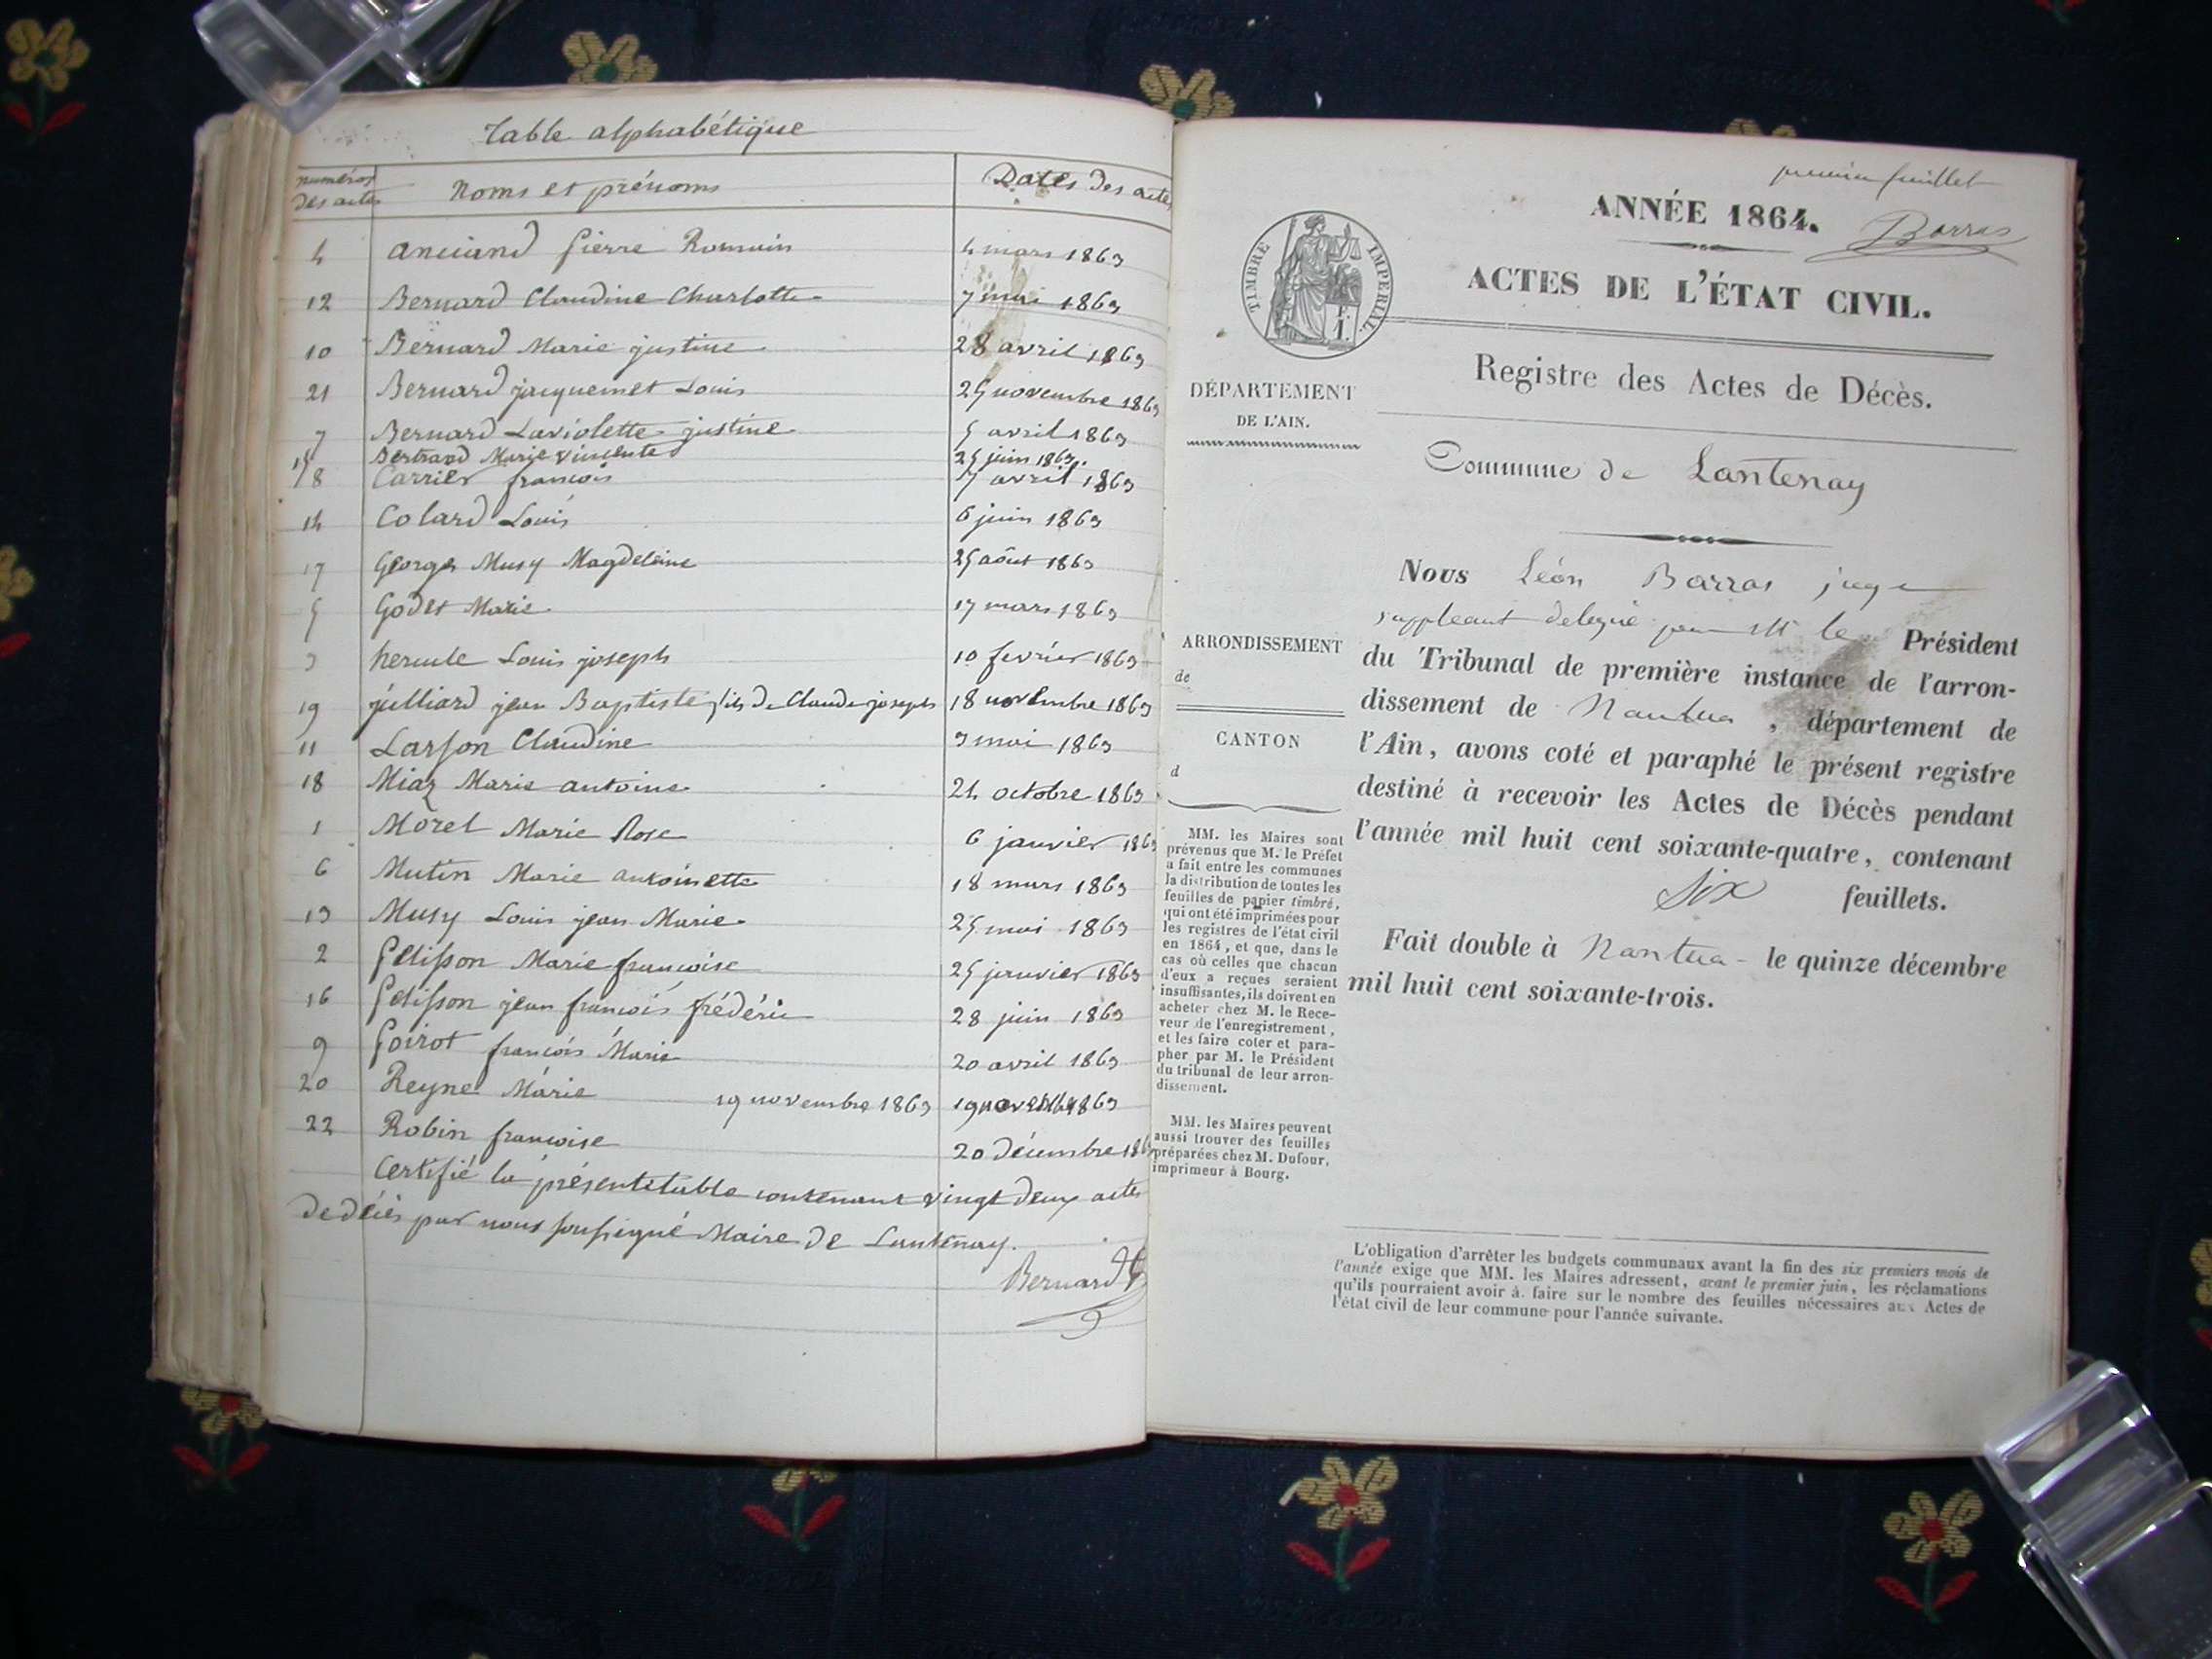 Table alphabétique
numéros des actes Noms et prénoms Dates des actes
4 anciand Pierre Romain 4 mars 1863
12 Bernard Claudine Charlotte 7 mai 1863
10 Bernard Marie justine 28 avril 1863
21 Bernard jacquemet Louis 25 novembre 1863
7 Bernard Laviolette justine 5 avril 1863
15 Bertrand Marie vincente 25 juin 1863.
8 Carrier françois 17 avril 1863
14 Colard Louis 6 juin 1863
17 Georges Musy Magdeleine 25 août 1863
5 Godet Marie 17 mars 1863
3 hercule Louis joseph 10 fevrier 1863
19 julliard jean Baptiste fils de Claude joseph 18 novembre 1863
11 Larson Claudine 3 mai 1863
18 Miaz Marie antoine 24 octobre 1863
1 Morel Marie Rose 6 janvier 1863
6 Mutin Marie antoinette 18 mars 1863
13 Musy Louis jean Marie 25 mai 1863
2 Pelisson Marie françoise 25 janvier 1863
16 Pelisson jean françois frédéric 28 juin 1863
9 Poirot françois Marie 20 avril 1863
20 Reyne Marie 19 novembre 1863 19 novembre 1863
22 Robin françoise 20 décembre 1863
Certifié la présente table contenant vingt deux actes
de décès par nous soussigné Maire de Lantenay.
Bernard
premier feuillet
ANNÉE 1864.
Barras
TIMBRE IMPÉRIAL
ACTES DE L'ÉTAT CIVIL.
Registre des Actes de Décès.
DÉPARTEMENT
DE L'AIN.
Commune de Lantenay
Nous Léon Barras juge
suppleant delegué par M le Président
du Tribunal de première instance de l'arron-
dissement de Nantua, département de
l'Ain, avons coté et paraphé le présent registre
destiné à recevoir les Actes de Décès pendant
l'année mil huit cent soixante-quatre, contenant
six feuillets.
Fait double à Nantua - le quinze décembre
mil huit cent soixante-trois.
ARRONDISSEMENT
de
CANTON
d
MM. les Maires sont
prévenus que M. le Préfet
a fait entre les communes
la distribution de toutes les
feuilles de papier timbré,
qui ont été imprimées pour
les registres de l'état civil
en 1864, et que, dans le
cas où celles que chacun
d'eux a reçues seraient
insuffisantes, ils doivent en
acheter chez M. le Rece-
veur de l'enregistrement,
et les faire coter et para-
pher par M. le Président
du tribunal de leur arron-
dissement.
MM. les Maires peuvent
aussi trouver des feuilles
préparées chez M. Dufour,
imprimeur à Bourg.
L'obligation d'arrêter les budgets communaux avant la fin des six premiers mois de
l'année exige que MM. les Maires adressent, avant le premier juin, les réclamations
qu'ils pourraient avoir à faire sur le nombre des feuilles nécessaires aux Actes de
l'état civil de leur commune pour l'année suivante.